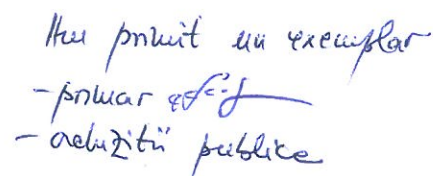 Am primit un exemplar
- primar
- achiziții publice